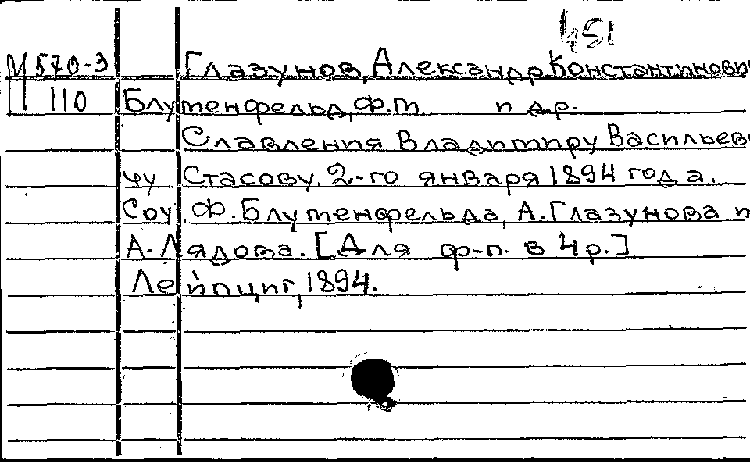 451
М 570-3 Глазунов, Александр Константинович
110 Блуменфельд, Ф.М. и др.
Славления Владимиру Васильеви
чу Стасову. 2-го января 1894 года.
Соч. Ф. Блуменфельда, А. Глазунова и
А. Лядова. [Для ф-п. в 4 р.]
Лейпциг, 1894.